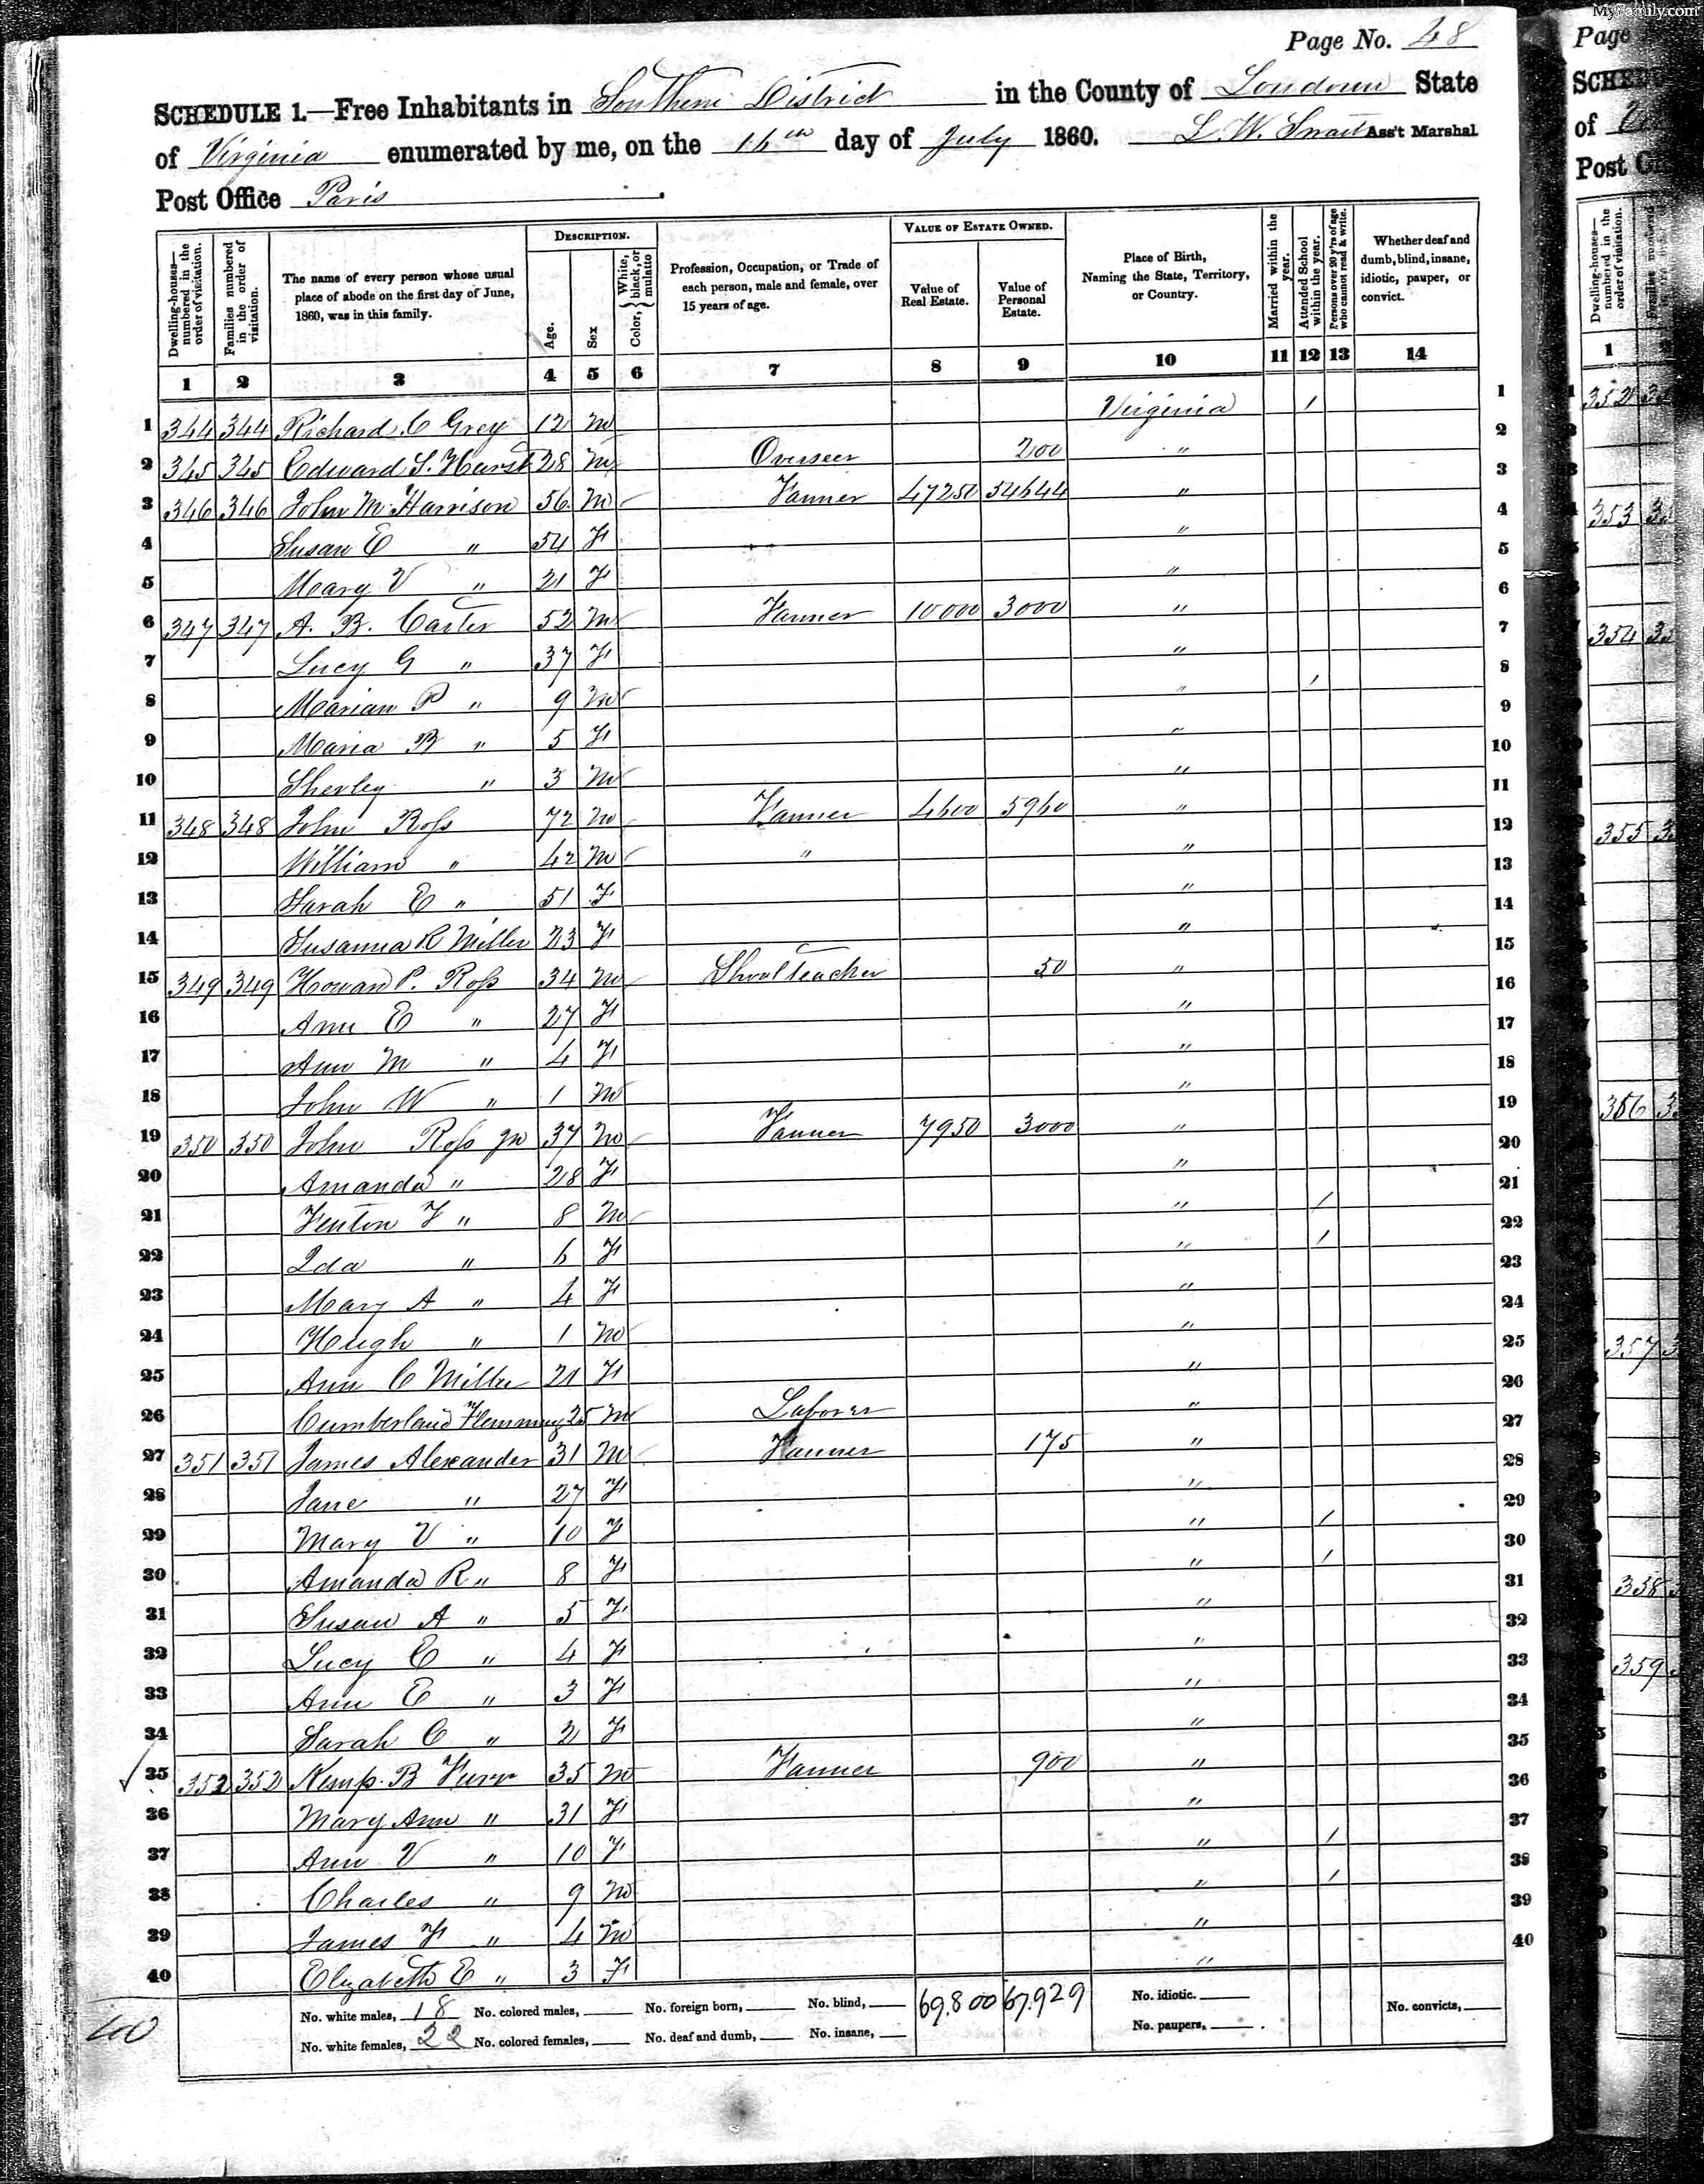 MyFamily.com
Page No. 48
SCHEDULE 1.—Free Inhabitants in Southern District in the County of Loudoun State
of Virginia enumerated by me, on the 16th day of July 1860. L. W. Ass't Marshal
Post Office Paris
Dwelling-houses—numbered in the order of visitation. Families numbered in the order of visitation. The name of every person whose usual place of abode on the first day of June, 1860, was in this family. DESCRIPTION. Age. Sex Color, White, black, or mulatto Profession, Occupation, or Trade of each person, male and female, over 15 years of age. VALUE OF ESTATE OWNED. Value of Real Estate. Value of Personal Estate. Place of Birth, Naming the State, Territory, or Country. Married within the year. Attended School within the year. Persons over 20 y'rs of age who cannot read & write. Whether deaf and dumb, blind, insane, idiotic, pauper, or convict.
1 2 3 4 5 6 7 8 9 10 11 12 13 14
1 344 344 Richard C Grey 12 M Virginia / 1
2 345 345 Edward S. 28 M Overseer 200 " 2
3 346 346 John M Harrison 56 M Farmer 47250 54644 " 3
4 Susan E " 54 F " 4
5 Mary V " 21 F " 5
6 347 347 A. B. Carter 52 M Farmer 10000 3000 " 6
7 Lucy G " 37 F " 7
8 Marian P " 9 M " / 8
9 Maria B " 5 F " 9
10 Sherley " 3 M " 10
11 348 348 John Ross 72 M Farmer 4600 5960 " 11
12 William " 42 M " " 12
13 Sarah E " 51 F " 13
14 Susanna R Miller 23 F " 14
15 349 349 Howard P. Ross 34 M School teacher 50 " 15
16 Ann E " 27 F " 16
17 Ann M " 4 F " 17
18 John W " 1 M " 18
19 350 350 John Ross Jr 37 M Farmer 7950 3000 " 19
20 Amanda " 28 F " 20
21 Fenton F " 8 M " / 21
22 Ida " 6 F " / 22
23 Mary A " 4 F " 23
24 Hugh " 1 M " 24
25 Ann C Miller 21 F " 25
26 Cumberland Flemming 25 M Laborer " 26
27 351 351 James Alexander 31 M Farmer 175 " 27
28 Jane " 27 F " 28
29 Mary V " 10 F " / 29
30 Amanda R " 8 F " / 30
31 Susan A " 5 F " 31
32 Lucy E " 4 F " 32
33 Ann E " 3 F " 33
34 Sarah C " 2 F " 34
35 352 352 Kemp. B Furr 35 M Farmer 900 " 35
36 Mary Ann " 31 F " 36
37 Ann V " 10 F " / 37
38 Charles " 9 M " / 38
39 James F " 4 M " 39
40 Elizabeth E " 3 F " 40
No. white males, 18 No. colored males, No. foreign born, No. blind, 69.800 67.929 No. idiotic. No. convicts,
No. white females, 22 No. colored females, No. deaf and dumb, No. insane, No. paupers,
40
Page
SCHED
of
Post
Dwelling-houses—numbered in the order of visitation.
1
352
353
354
355
356
357
358
359